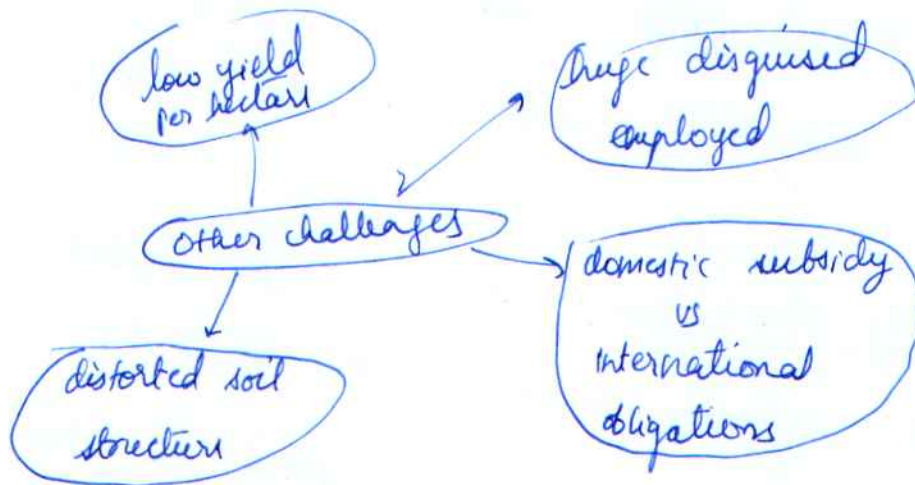 low yield
per hectare
Huge disguised
employed
Other challenges
domestic subsidy
vs
international
obligations
distorted soil
structure